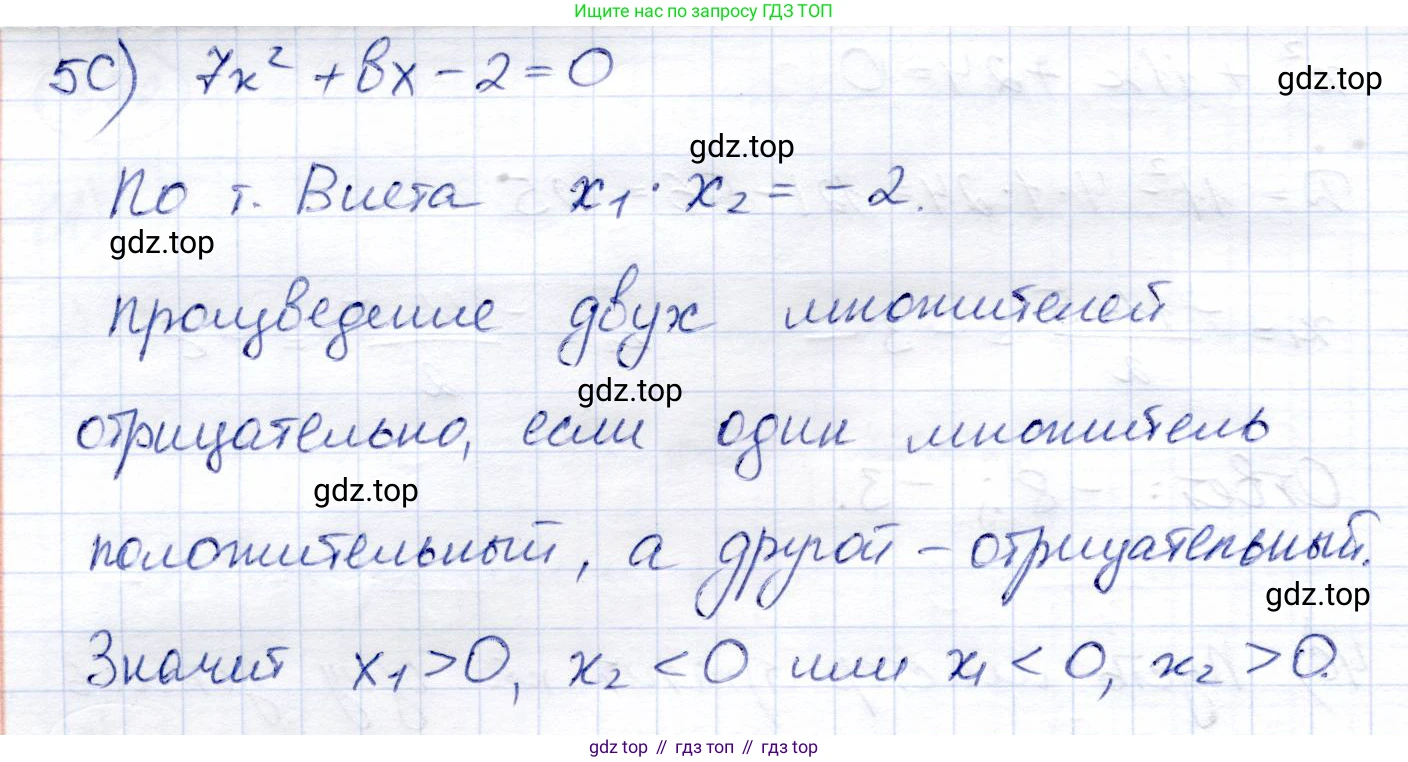 Ищите нас по запросу ГДЗ ТОП
5С) 7x² + bx - 2 = 0
gdz.top
gdz.top
По т. Виета x₁ · x₂ = - 2.
gdz.top
произведение двух множителей
gdz.top
отрицательно, если один множитель
gdz.top
положительный, а другой – отрицательный.
gdz.top
Значит x₁ > 0, x₂ < 0 или x₁ < 0, x₂ > 0.
gdz top // гдз топ // гдз top